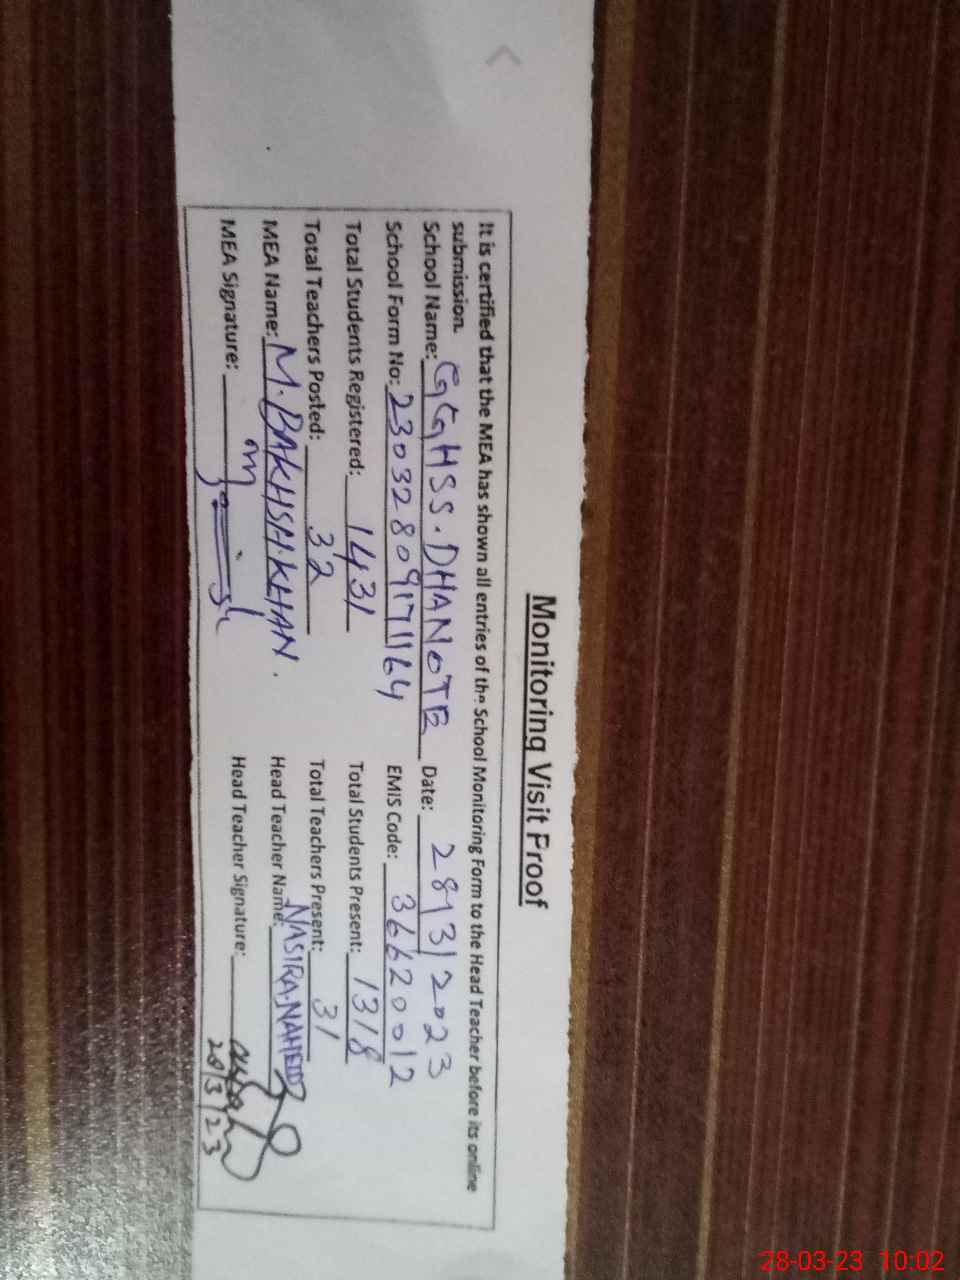 Monitoring Visit Proof
It is certified that the MEA has shown all entries of the School Monitoring Form to the Head Teacher before its online
submission.
School Name: GGHSS. DHANOTE Date: 28/3/2023
School Form No: 23032809171164 EMIS Code: 36620012
Total Students Registered: 1431 Total Students Present: 1318
Total Teachers Posted: 32 Total Teachers Present: 31
MEA Name: M. BAKHSH. KHAN. Head Teacher Name: NASIRA. NAHEED
MEA Signature: Head Teacher Signature:
28/3/23
28-03-23 10:02